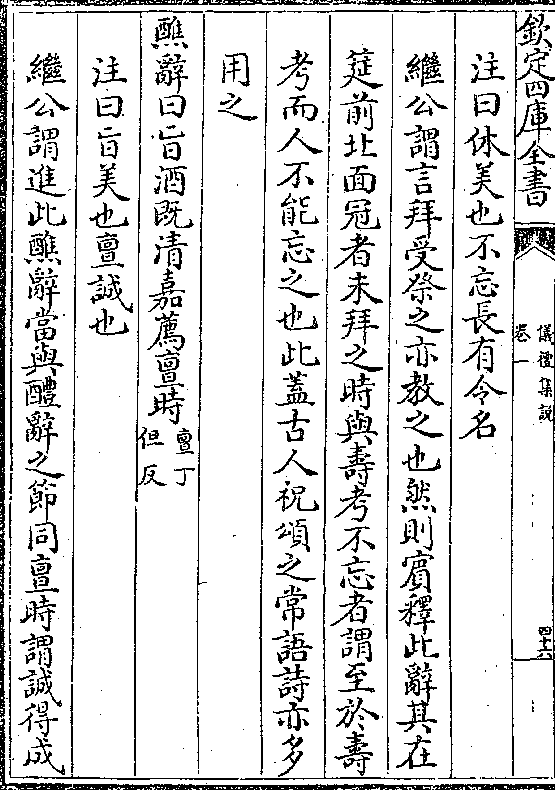 欽定四庫全書
儀禮集說
卷一
四十六
注曰休美也不忘長有令名
繼公謂言拜受祭之亦教之也然則賓釋此辭其在
筵前北面冠者未拜之時與壽考不忘者謂至於壽
考而人不能忘之也此蓋古人祝頌之常語詩亦多
用之
醮辭曰旨酒既清嘉薦亶時亶丁但反
注曰旨美也亶誠也
繼公謂進此醮辭當與醴辭之節同亶時謂誠得成